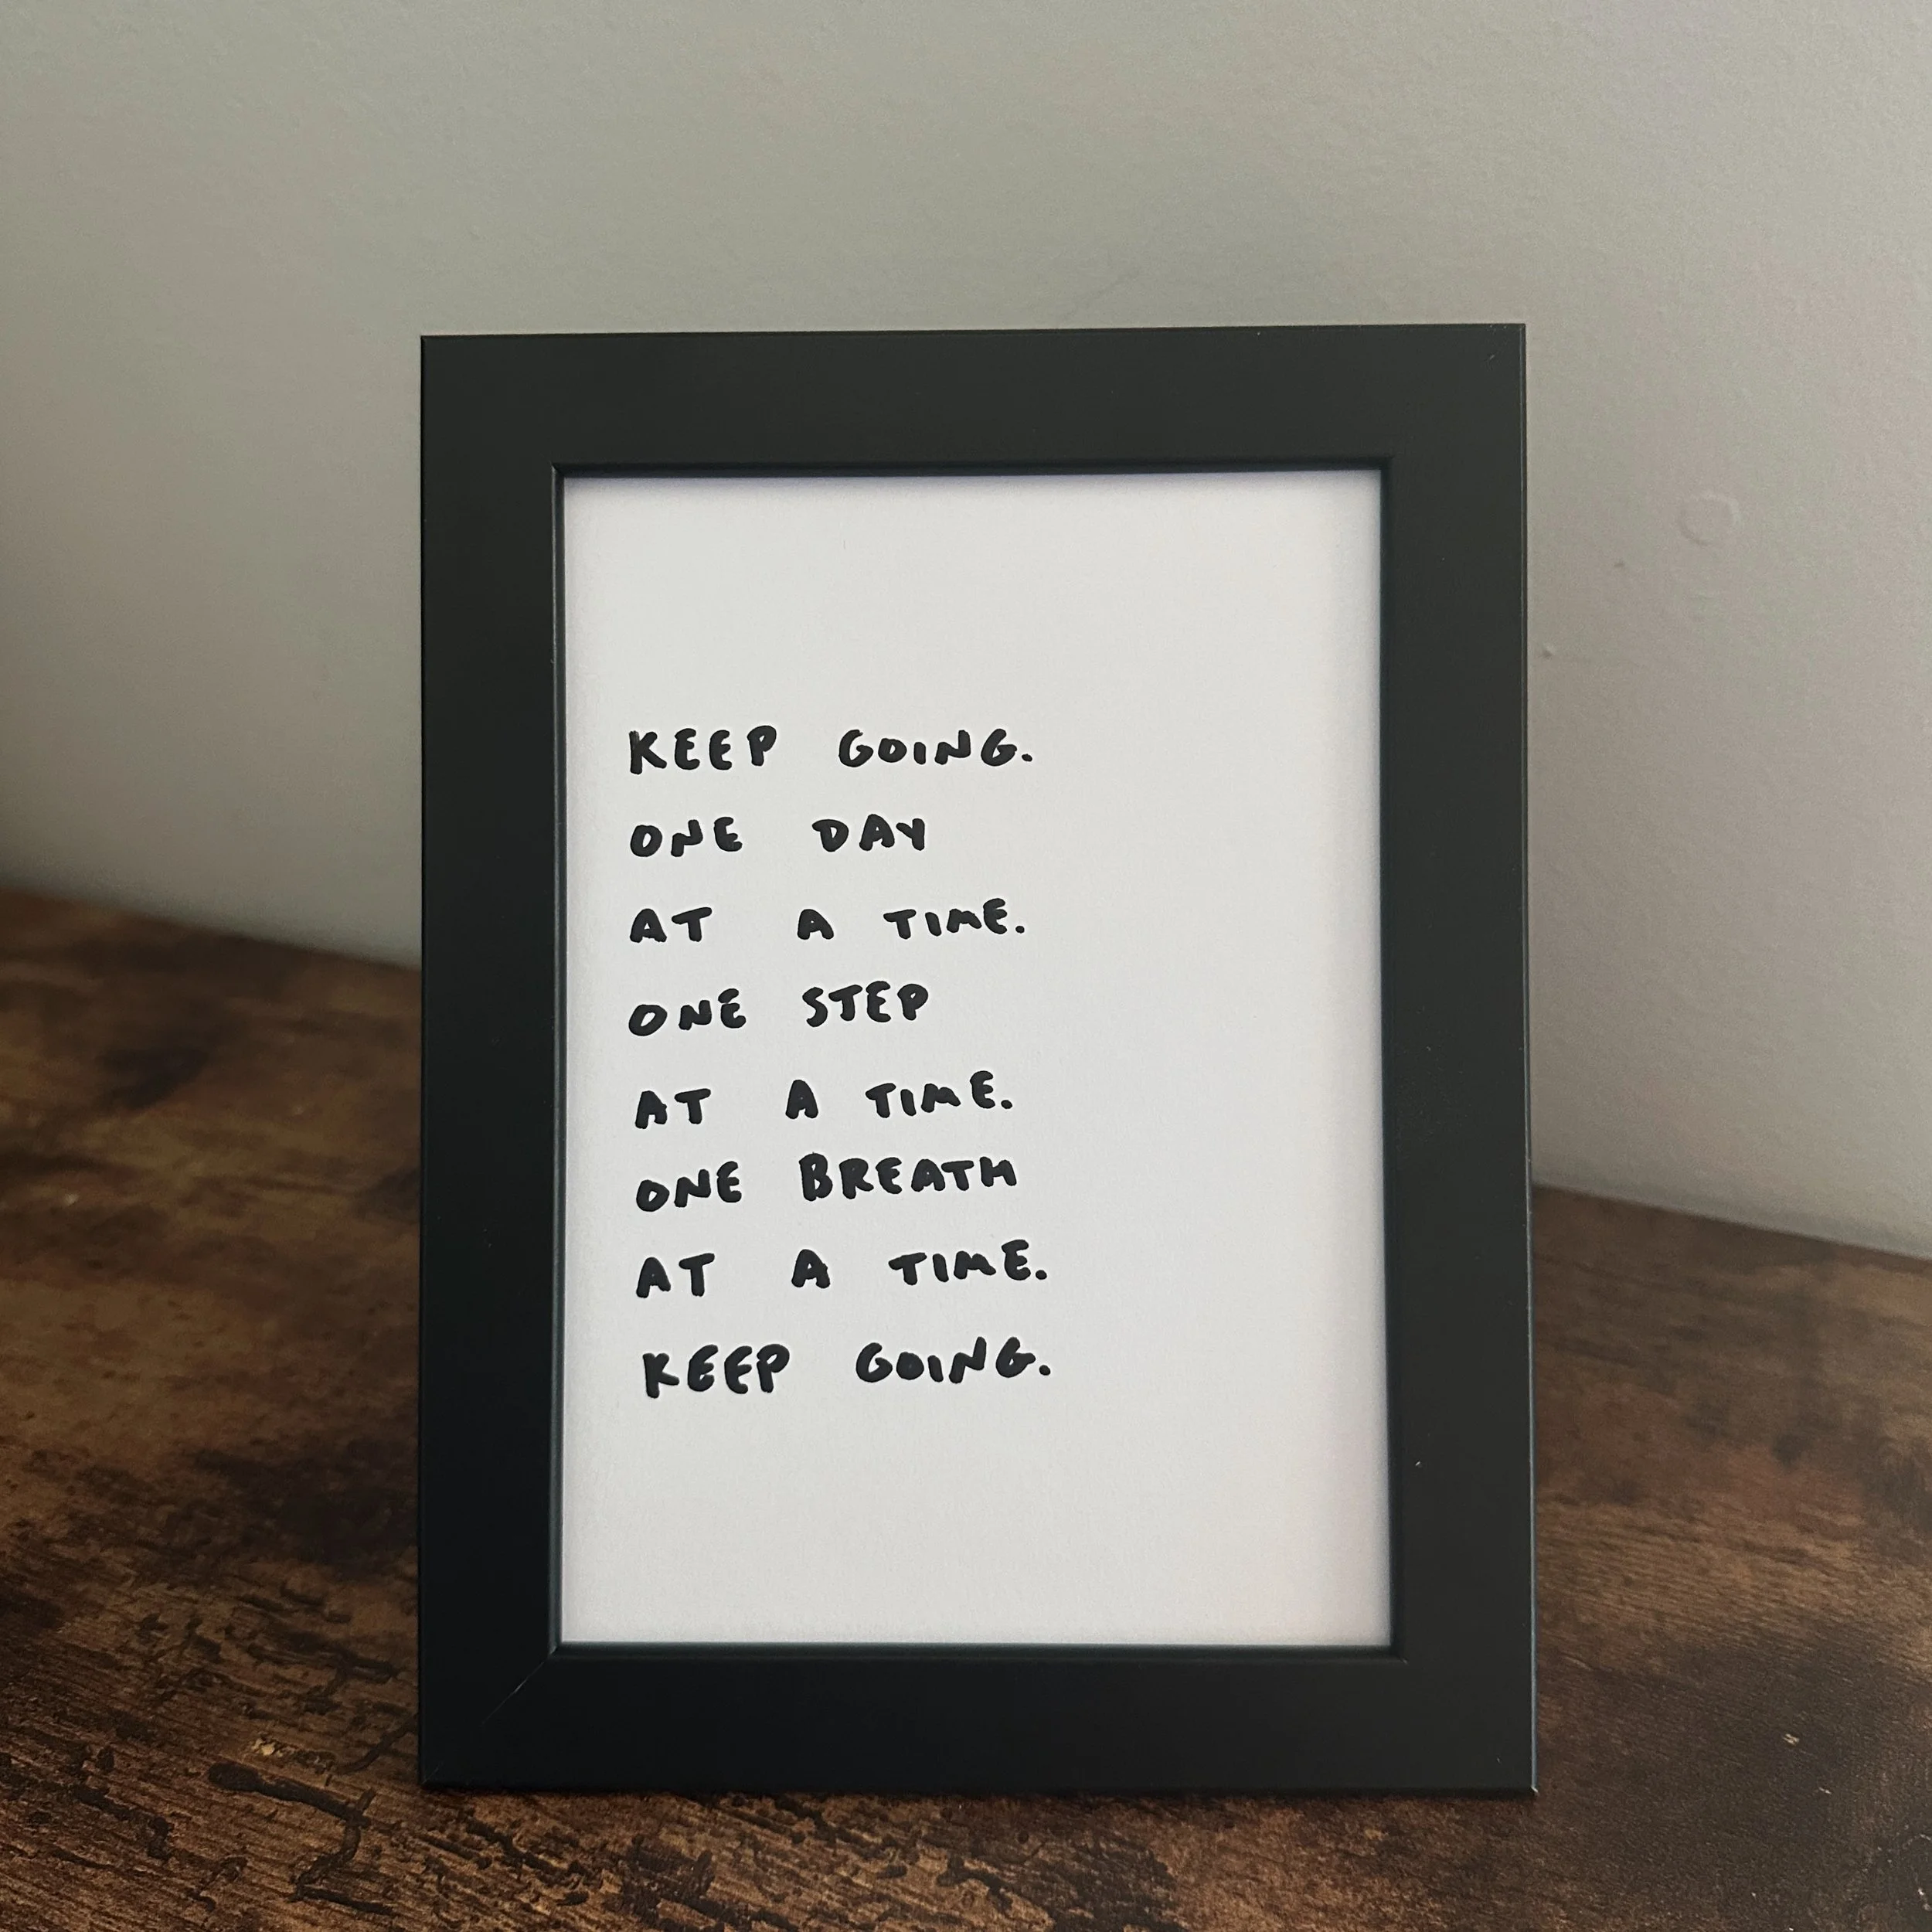 KEEP GOING.
ONE DAY
AT A TIME.
ONE STEP
AT A TIME.
ONE BREATH
AT A TIME.
KEEP GOING.